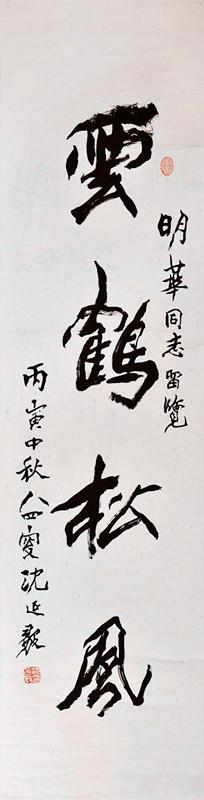 明華同志留覽
雲鶴松風
丙寅中秋八四叟沈延毅